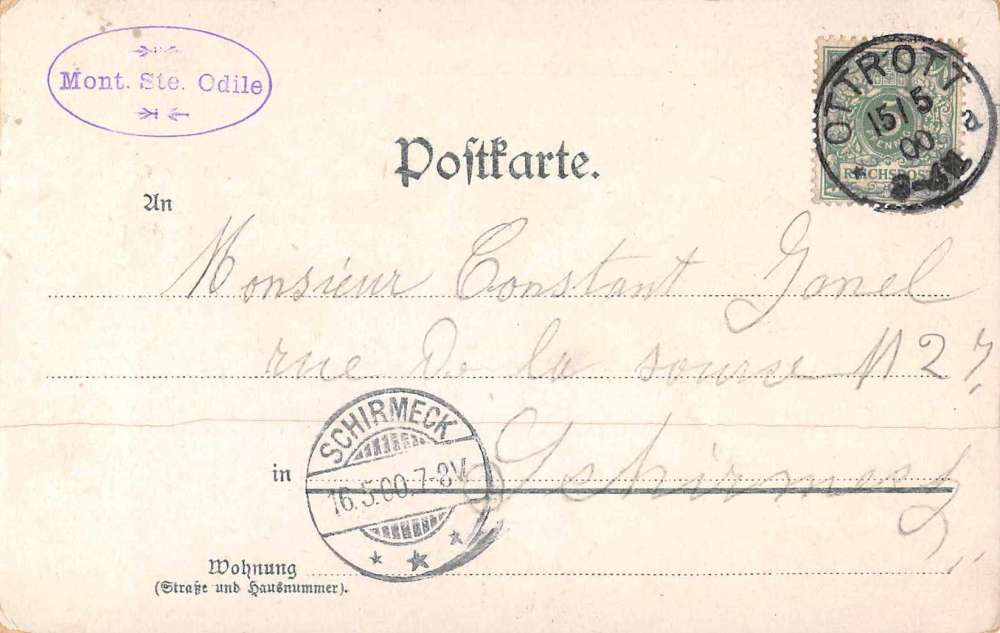 Mont. Ste. Odile
OTTROTT
15/5
00
a
REICHSPOST
Postkarte.
An
Monsieur Constant Ganel
rue de la sourse N 27,
SCHIRMECK
16.5.00.7-8V.
in Schirmeck
Wohnung
(Straße und Hausnummer).